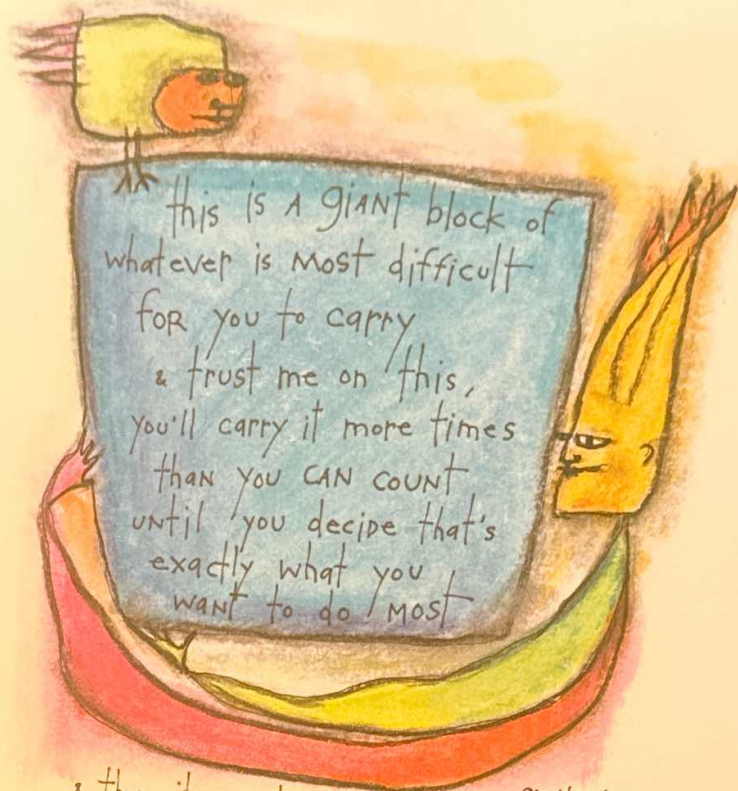 this is A giANt block of
whatever is Most difficult
foR you to carry
& trust me on this,
you'll carry it more times
thaN you CAN couNt
uNtil you decide that's
exactly what you
waNt to do Most